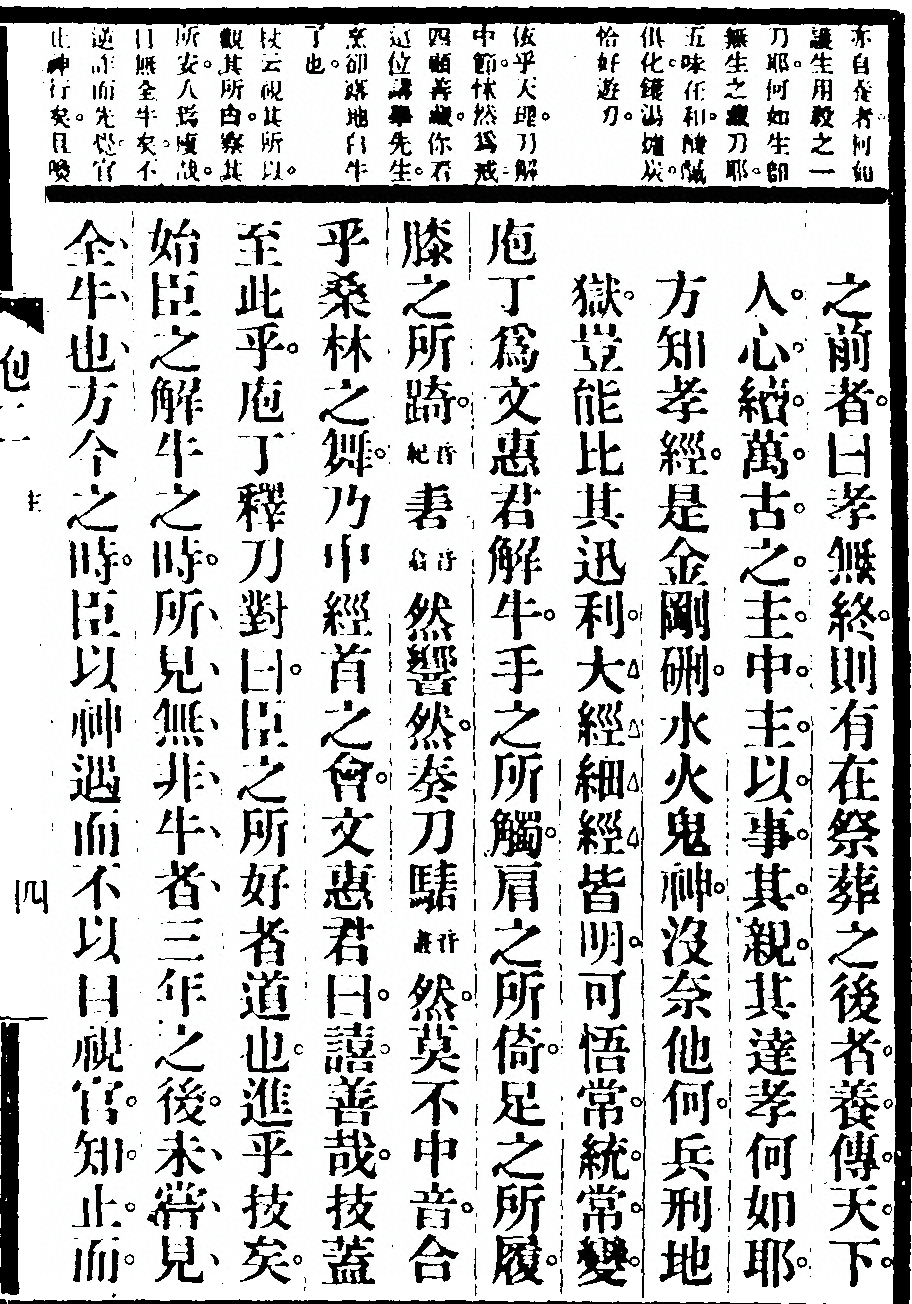 亦自養者何如
護生用殺之一
刀耶何如生卽
無生之藏刀耶
五味任和醎
俱化鑊湯爐炭
恰好遊刃
依乎天理刀解
中節怵然爲戒
四顧善藏你看
這位講學先生
烹卻露地白牛
了也
杖云視其所以
觀其所由察其
所安人焉廋哉
目無全牛矣不
逆詐而先覺官
止神行矣且喚
之前者曰孝無終則有在祭葬之後者養傳天下
人心綇萬古之主中主以事其親其達孝何如耶
方知孝經是金剛硎水火鬼神沒奈他何兵刑地
獄豈能比其迅利大經細經皆明可悟常統常變
庖丁爲文惠君解牛手之所觸肩之所倚足之所履
膝之所踦音紀砉音然響然奏刀騞音然莫不中音合
乎桑林之舞乃中經首之會文惠君曰譆善哉技蓋
至此乎庖丁釋刀對曰臣之所好者道也進乎技矣
始臣之解牛之時所見無非牛者三年之後未嘗見
全牛也方今之時臣以神遇而不以目視官知止而
四